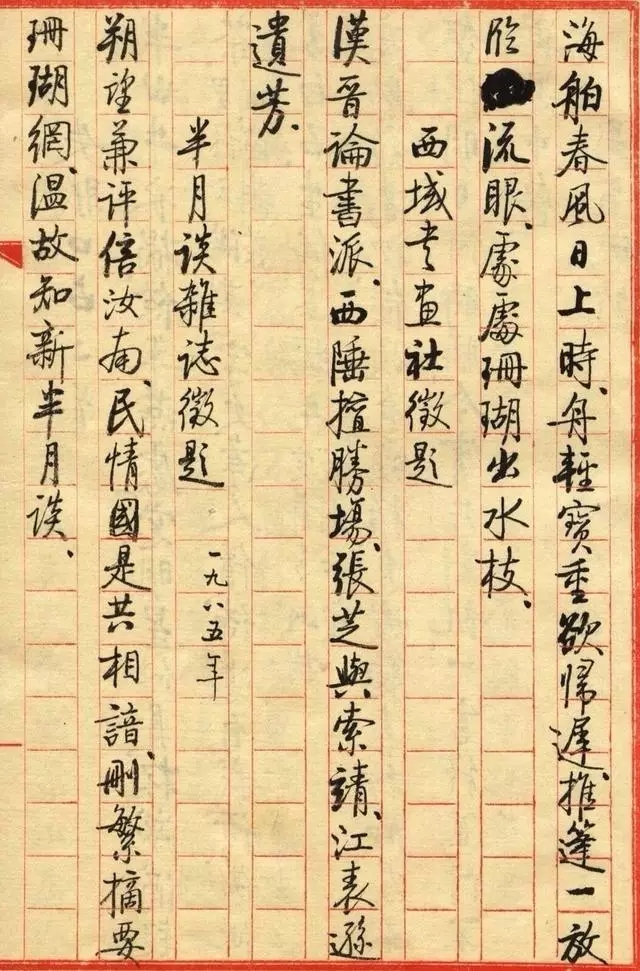 海舶春風日上時、舟輕寶重欲歸遲、推篷一放
临流眼、處處珊瑚出水枝、
西域书画社徵題
漢晉論書派、西陲擅勝場、張芝與索靖、江表遜
遺芳、
半月談雜誌徵題 一九八五年
朔望兼評倍汝南、民情國是共相諳、刪繁摘要
珊瑚網、温故知新半月談、